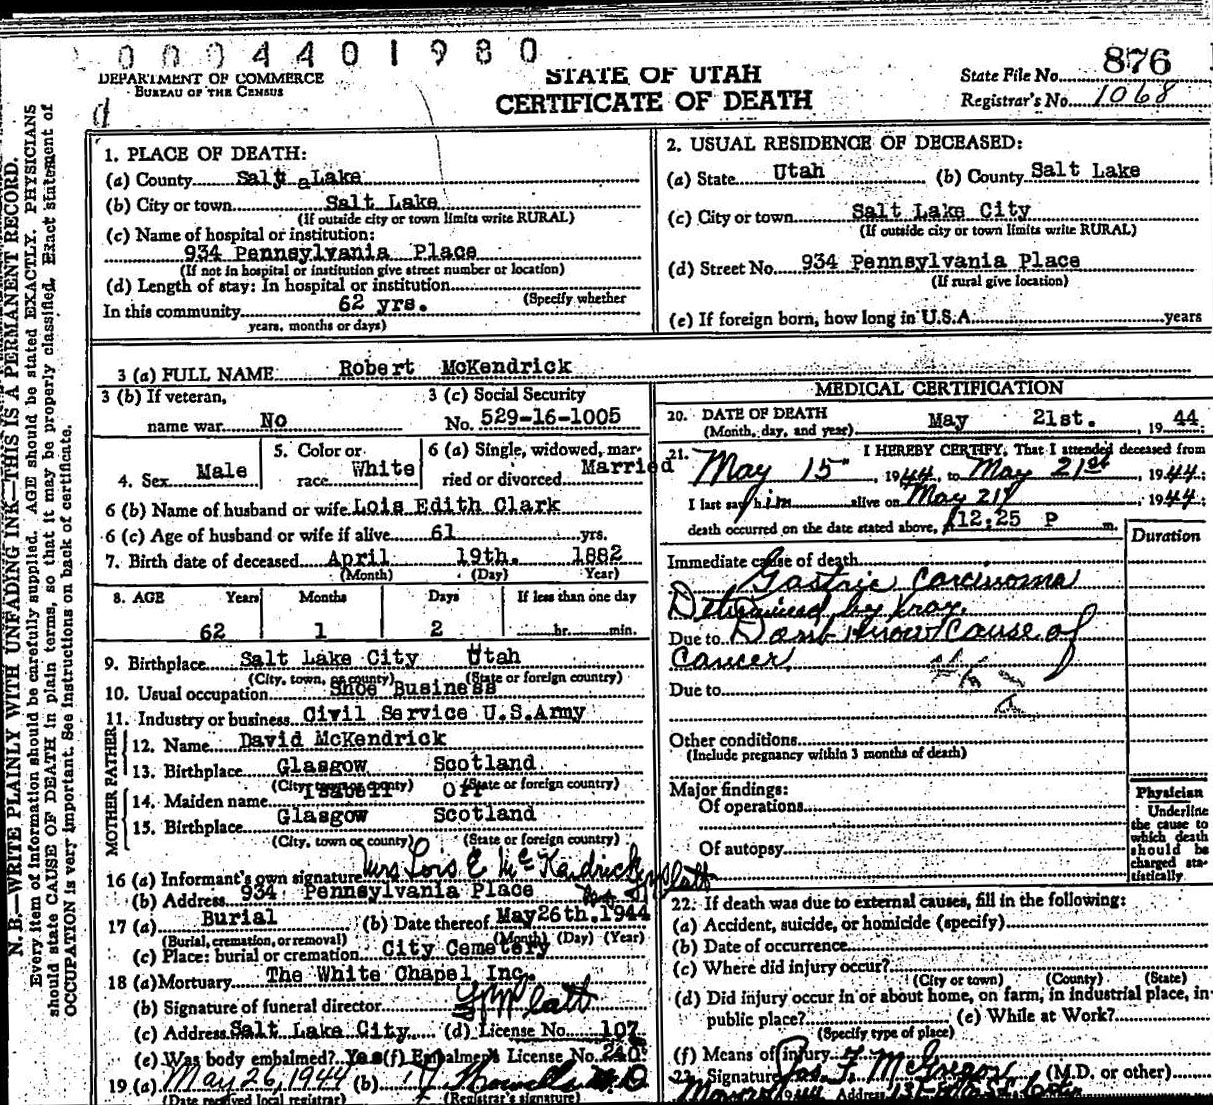 0004401980
DEPARTMENT OF COMMERCE
BUREAU OF THE CENSUS
STATE OF UTAH
CERTIFICATE OF DEATH
State File No. 876
Registrar's No. 1068
N. B.—WRITE PLAINLY WITH UNFADING INK—THIS IS A PERMANENT RECORD.
Every item of information should be carefully supplied. AGE should be stated EXACTLY. PHYSICIANS
should state CAUSE OF DEATH in plain terms, so that it may be properly classified. Exact statement of
OCCUPATION is very important. See instructions on back of certificate.
1. PLACE OF DEATH:
(a) County Salt Lake
(b) City or town Salt Lake
(If outside city or town limits write RURAL)
(c) Name of hospital or institution:
934 Pennsylvania Place
(If not in hospital or institution give street number or location)
(d) Length of stay: In hospital or institution
(Specify whether
In this community 62 yrs.
years, months or days)
2. USUAL RESIDENCE OF DECEASED:
(a) State Utah (b) County Salt Lake
(c) City or town Salt Lake City
(If outside city or town limits write RURAL)
(d) Street No. 934 Pennsylvania Place
(If rural give location)
(e) If foreign born, how long in U.S.A. years
3 (a) FULL NAME Robert McKendrick
3 (b) If veteran,
name war No
3 (c) Social Security
No. 529-16-1005
4. Sex Male
5. Color or
race White
6 (a) Single, widowed, mar-
ried or divorced Married
6 (b) Name of husband or wife Lois Edith Clark
6 (c) Age of husband or wife if alive 61 yrs.
7. Birth date of deceased April 19th. 1882
(Month) (Day) Year)
8. AGE Years Months Days If less than one day
62 1 2 hr. min.
9. Birthplace Salt Lake City Utah
(City, town, or county) (State or foreign country)
10. Usual occupation Shoe Business
11. Industry or business Civil Service U.S.Army
FATHER
12. Name David McKendrick
13. Birthplace Glasgow Scotland
(City, town or county) (State or foreign country)
MOTHER
14. Maiden name Isabell Orr
15. Birthplace Glasgow Scotland
(City, town or county) (State or foreign country)
16 (a) Informant's own signature Mrs Lois E McKendrick
(b) Address 934 Pennsylvania Place
17 (a) Burial (b) Date thereof May 26th. 1944
(Burial, cremation, or removal) (Month) (Day) (Year)
(c) Place: burial or cremation City Cemetery
18 (a) Mortuary The White Chapel Inc.
(b) Signature of funeral director
(c) Address Salt Lake City (d) License No. 107
(e) Was body embalmed? Yes (f) Embalmer's License No. 240
19 (a) May 26, 1944 (b) M D
(Date received local registrar) (Registrar's signature)
MEDICAL CERTIFICATION
20. DATE OF DEATH
(Month, day, and year) May 21st. , 19 44.
21. I HEREBY CERTIFY, That I attended deceased from
May 15" , 1944, to May 21st , 1944;
I last saw him alive on May 21 , 1944;
death occurred on the date stated above, 12:25 P m.
Duration
Immediate cause of death
Gastric Carcinoma
Determined by Xray.
Due to Dont know Cause of
Cancer
Due to
Other conditions
(Include pregnancy within 3 months of death)
Major findings:
Of operations
Of autopsy
Physician
Underline
the cause to
which death
should be
charged sta-
tistically
22. If death was due to external causes, fill in the following:
(a) Accident, suicide, or homicide (specify)
(b) Date of occurrence
(c) Where did injury occur?
(City or town) (County) (State)
(d) Did injury occur in or about home, on farm, in industrial place, in
public place? (e) While at Work?
(Specify type of place)
(f) Means of injury
23. Signature Jas. F McGregor (M.D. or other)
Address